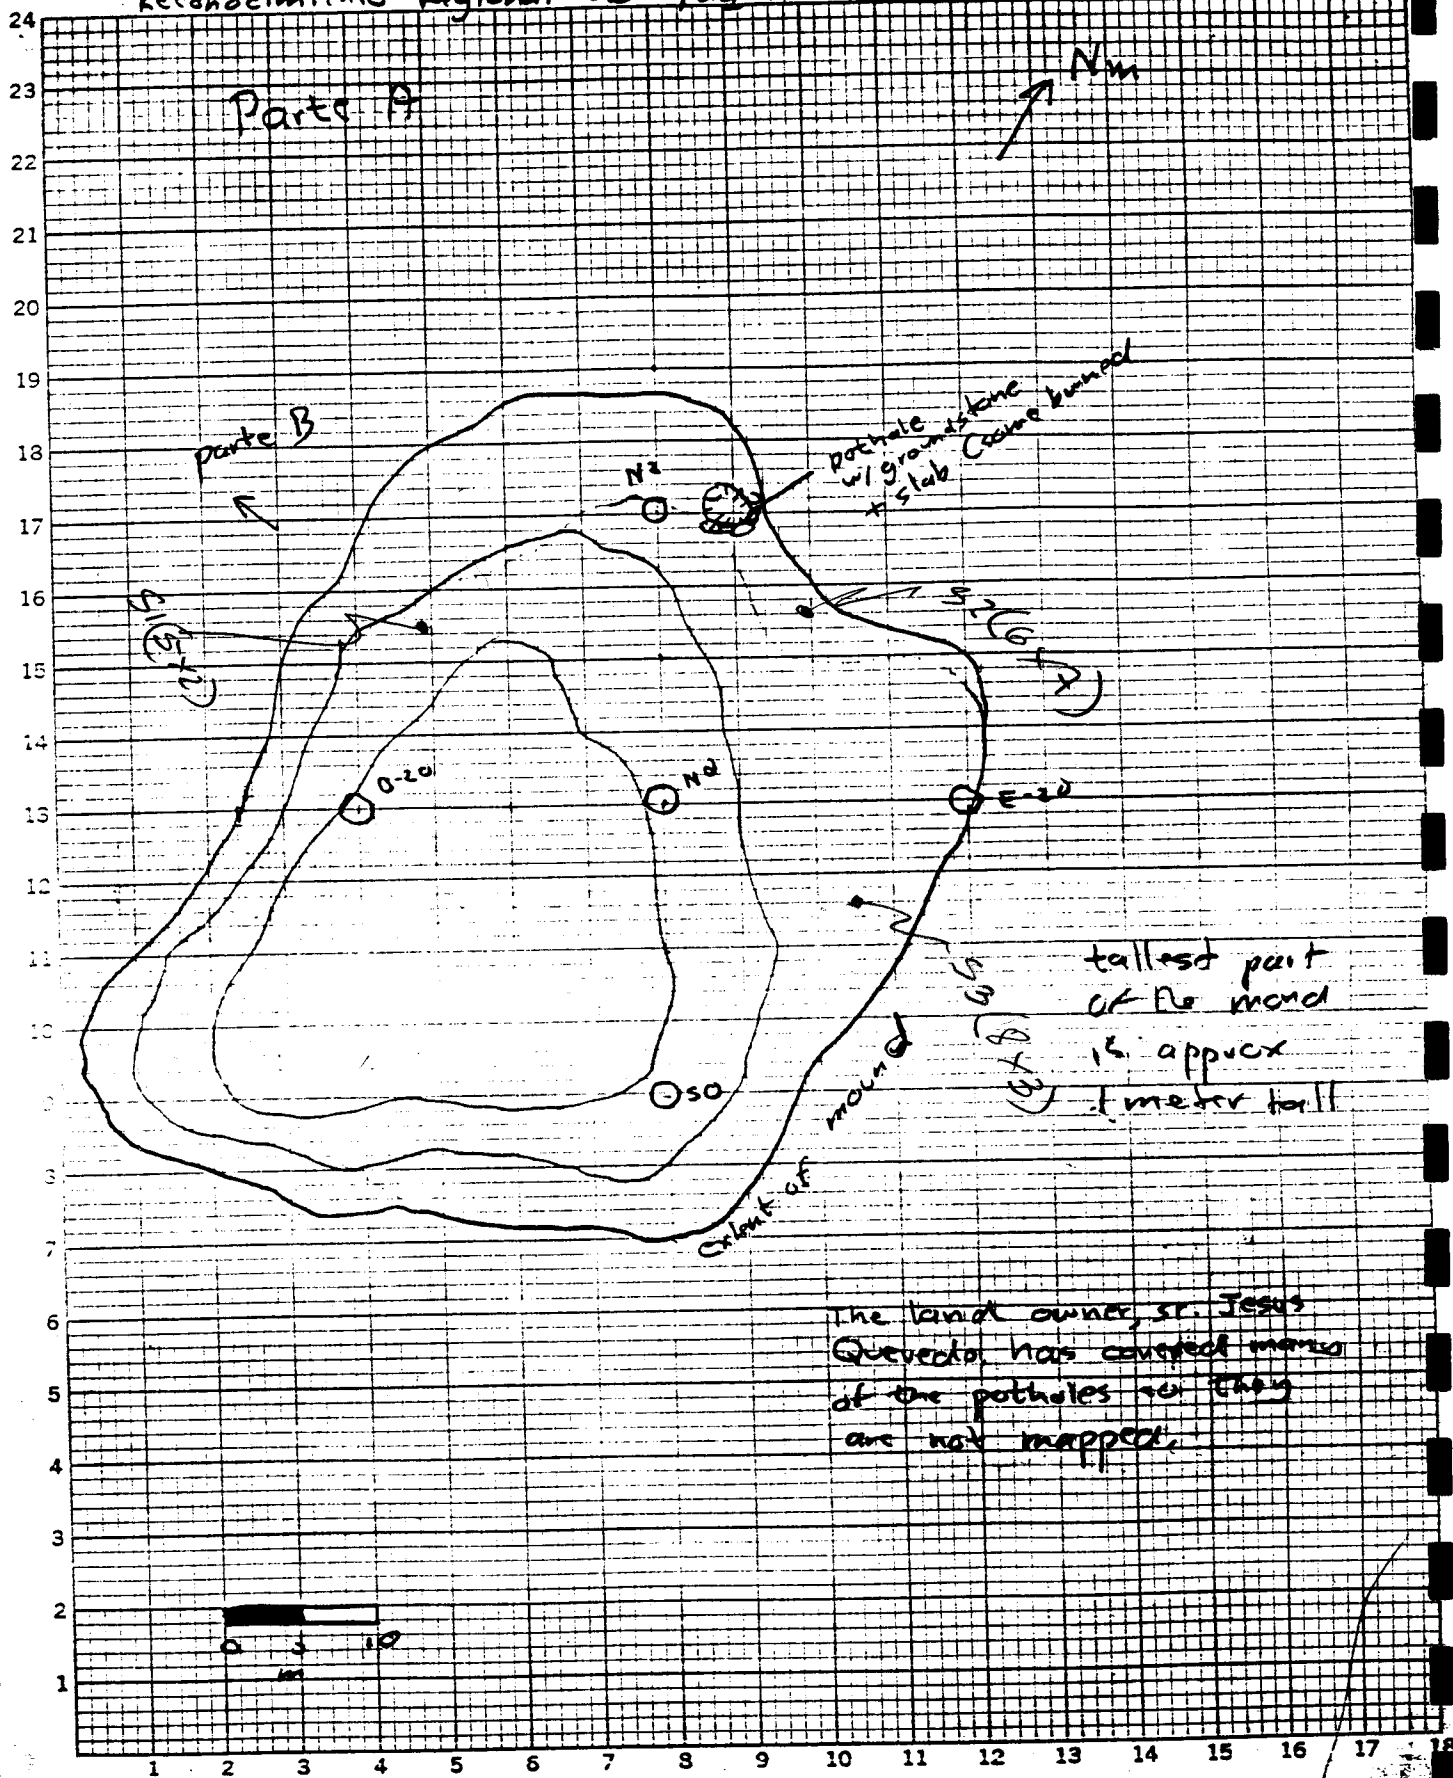 Reconocimiento Regional
24
23
22
21
20
19
18
17
16
15
14
13
12
11
10
9
8
7
6
5
4
3
2
1
Parte A
Nm
parte B
pothole
w/ groundstone
+ slab (some burned
O-20
E-20
SO
extent of mound
tallest part
of the mond
is approx
1 meter tall
The land owner, sr. Jesus
Quevedo, has covered many
of the potholes so they
are not mapped.
0 5 10
m
1 2 3 4 5 6 7 8 9 10 11 12 13 14 15 16 17 18